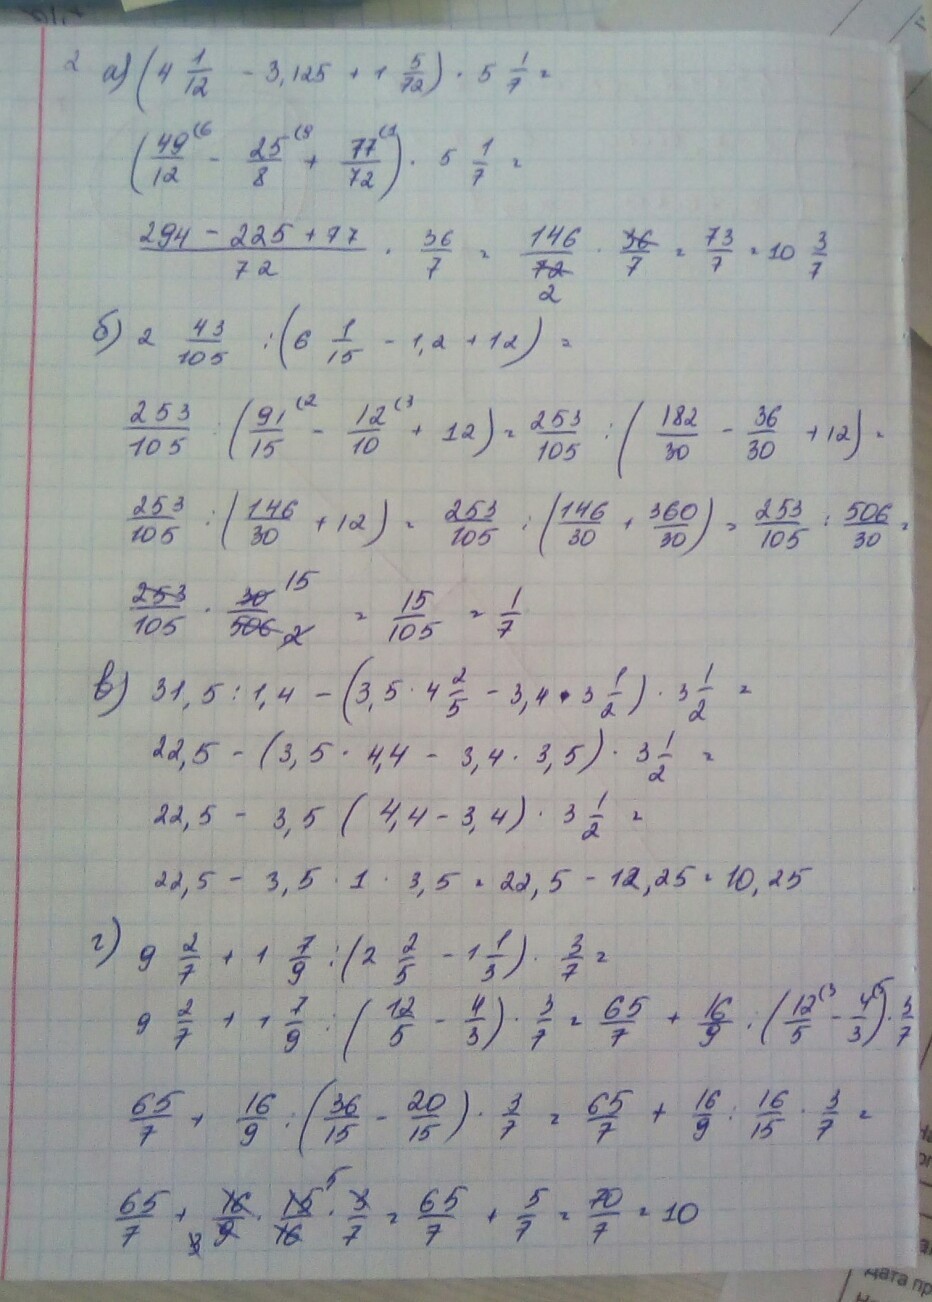 2 а) (4 1/12 - 3,125 + 1 5/72) · 5 1/7 =
(49/12 (6 - 25/8 (9 + 77/72 (1) · 5 1/7 =
(294 - 225 + 77)/72 · 36/7 = 146/72 2 · 36/7 = 73/7 = 10 3/7
б) 2 43/105 : (6 1/15 - 1,2 + 12) =
253/105 : (91/15 (2 - 12/10 (3 + 12) = 253/105 : (182/30 - 36/30 + 12) =
253/105 : (146/30 + 12) = 253/105 : (146/30 + 360/30) = 253/105 : 506/30 =
253/105 · 30/506 15 2 = 15/105 = 1/7
в) 31,5 : 1,4 - (3,5 · 4 2/5 - 3,4 · 3 1/2) · 3 1/2 =
22,5 - (3,5 · 4,4 - 3,4 · 3,5) · 3 1/2 =
22,5 - 3,5 (4,4 - 3,4) · 3 1/2 =
22,5 - 3,5 · 1 · 3,5 = 22,5 - 12,25 = 10,25
г) 9 2/7 + 1 7/9 : (2 2/5 - 1 1/3) · 3/7 =
9 2/7 + 1 7/9 : (12/5 - 4/3) · 3/7 = 65/7 + 16/9 : (12/5 (3 - 4/3 (5) · 3/7
65/7 + 16/9 : (36/15 - 20/15) · 3/7 = 65/7 + 16/9 : 16/15 · 3/7 =
65/7 + 16/9 3 · 15/16 5 · 3/7 = 65/7 + 5/7 = 70/7 = 10
Дата пр